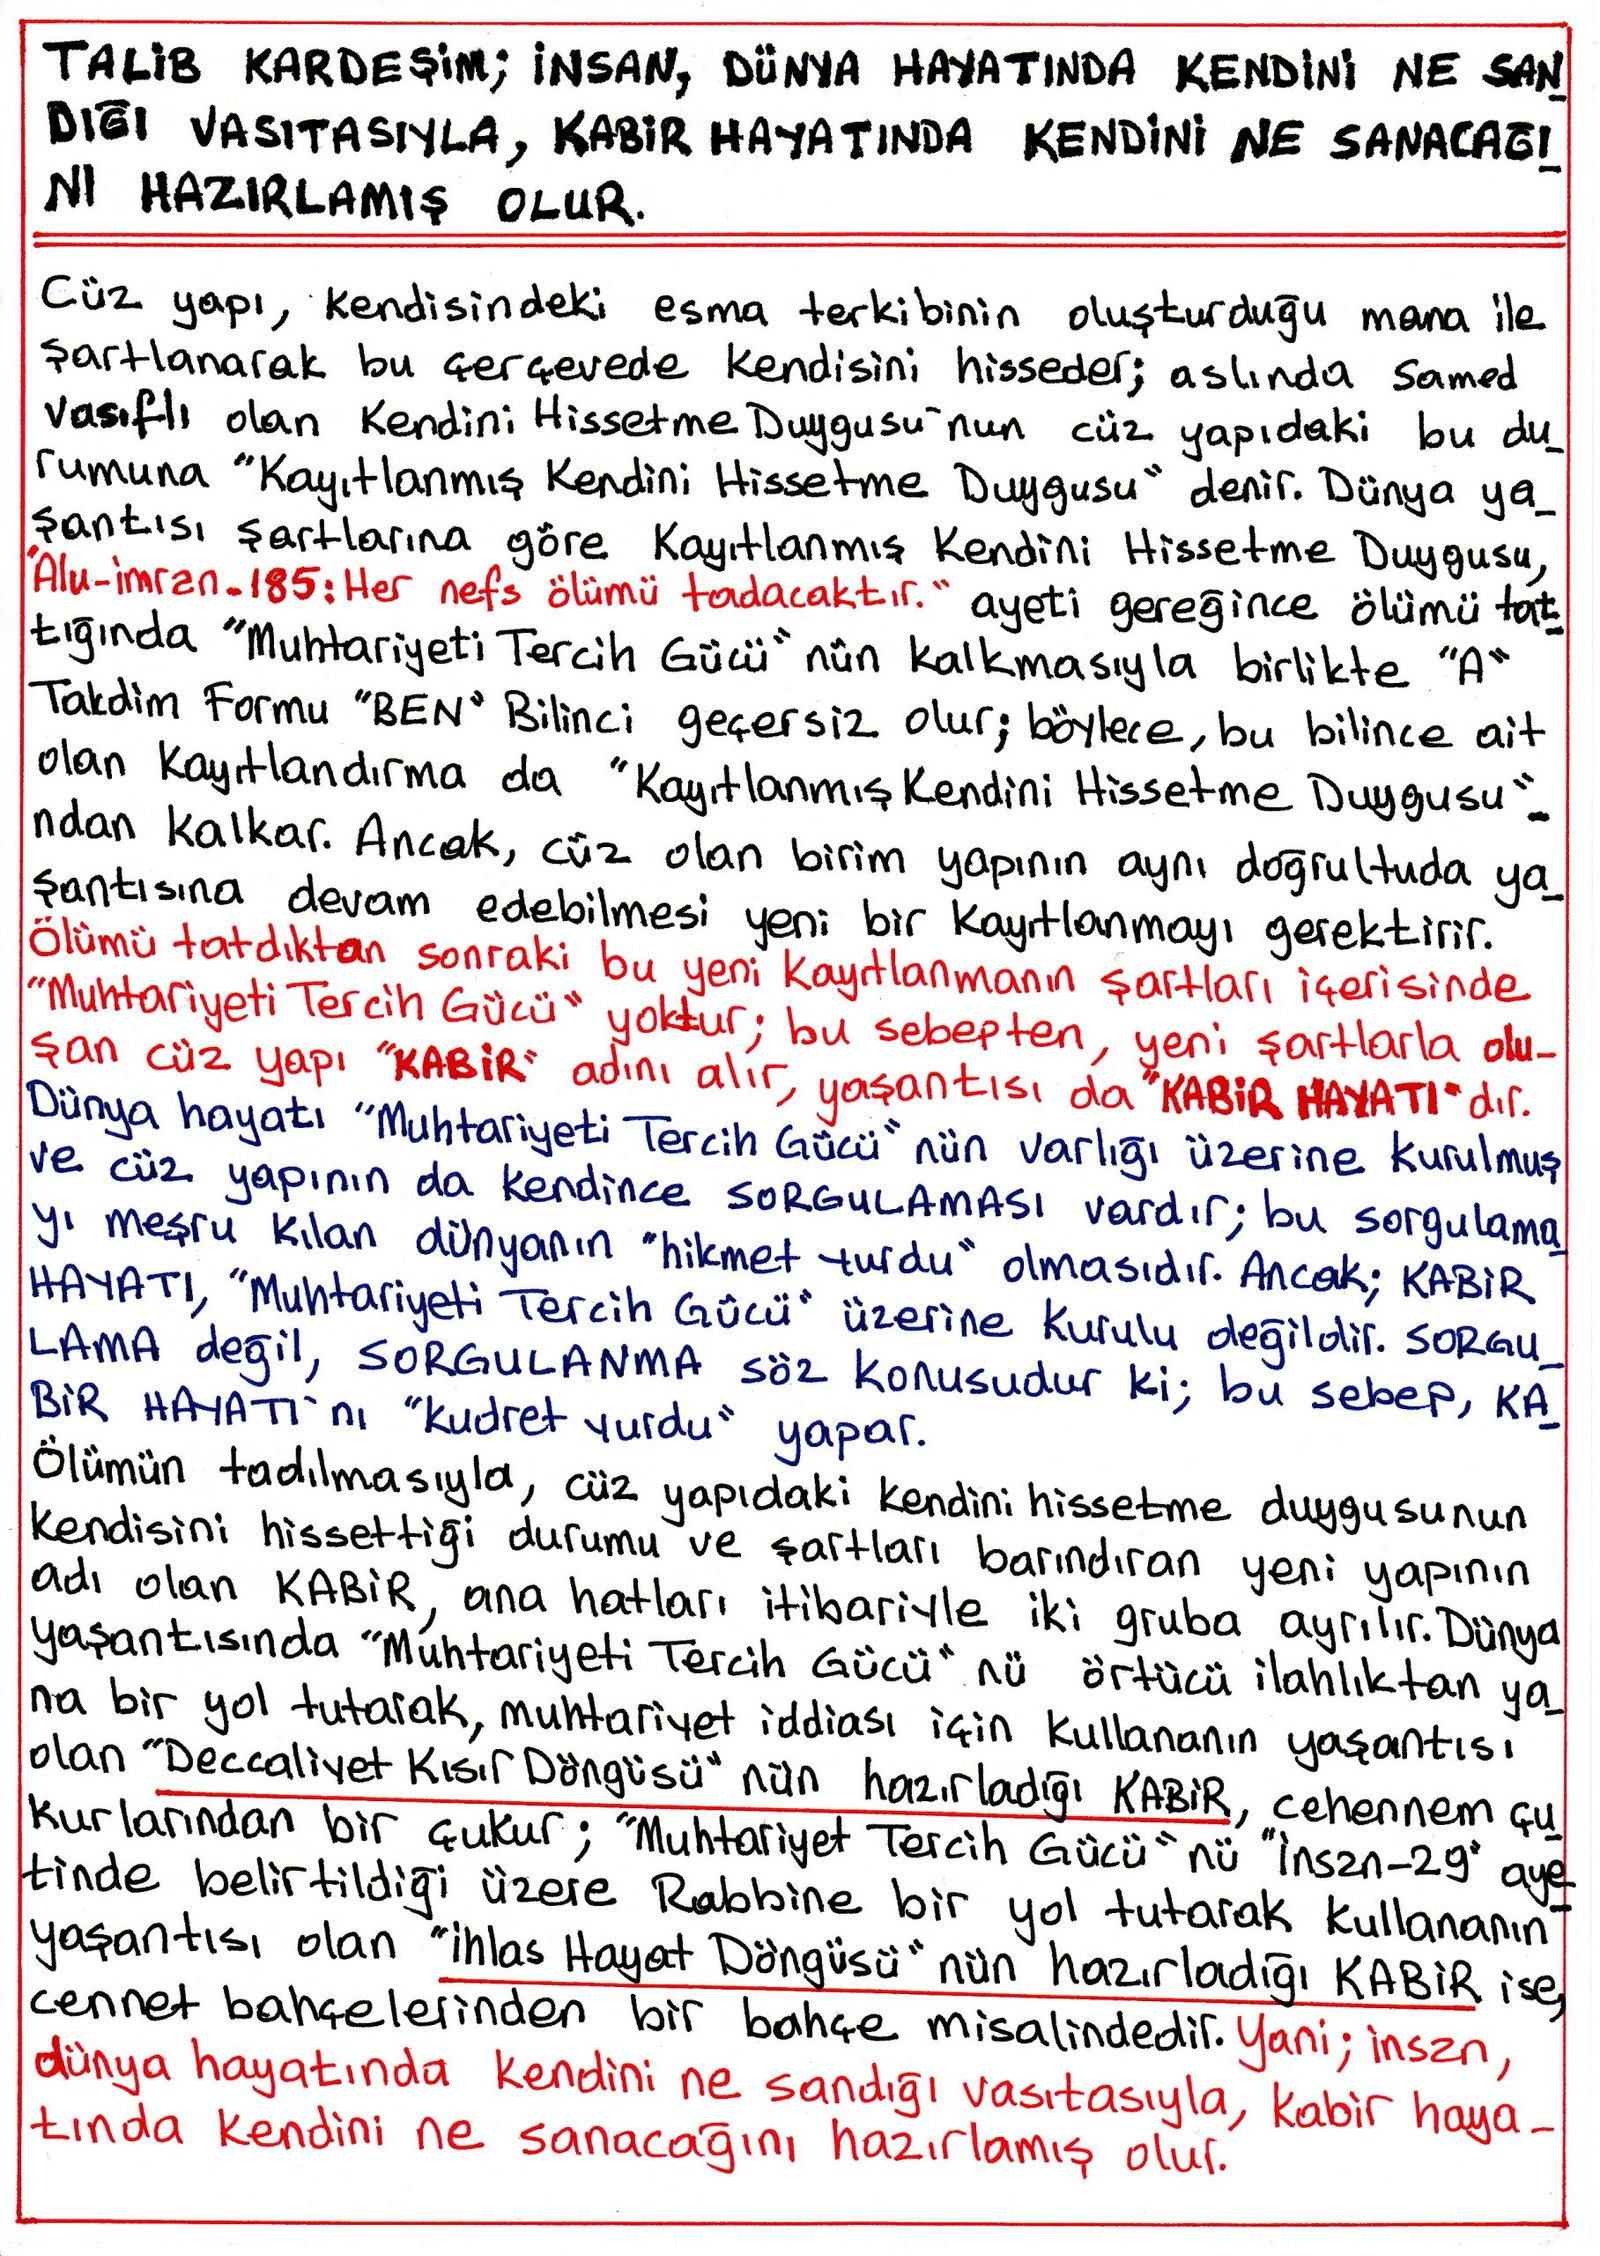 TALİB KARDEŞİM; İNSAN, DÜNYA HAYATINDA KENDİNİ NE SAN_
DIĞI VASITASIYLA, KABİR HAYATINDA KENDİNİ NE SANACAĞI_
NI HAZIRLAMIŞ OLUR.
Cüz yapı, kendisindeki esma terkibinin oluşturduğu mana ile
şartlanarak bu çerçevede kendisini hisseder; aslında Samed
vasıflı olan Kendini Hissetme Duygusu'nun cüz yapıdaki bu du_
rumuna "Kayıtlanmış Kendini Hissetme Duygusu" denir. Dünya ya_
şantısı şartlarına göre Kayıtlanmış Kendini Hissetme Duygusu,
"Alu-imran-185: Her nefs ölümü tadacaktır." ayeti gereğince ölümü tat_
tığında "Muhtariyeti Tercih Gücü"nün kalkmasıyla birlikte "A"
Takdim Formu "BEN" Bilinci geçersiz olur; böylece, bu bilince ait
olan kayıtlandırma da "Kayıtlanmış Kendini Hissetme Duygusu"_
ndan kalkar. Ancak, cüz olan birim yapının aynı doğrultuda ya_
şantısına devam edebilmesi yeni bir kayıtlanmayı gerektirir.
Ölümü tatdıktan sonraki bu yeni kayıtlanmanın şartları içerisinde
"Muhtariyeti Tercih Gücü" yoktur; bu sebepten, yeni şartlarla olu-
şan cüz yapı "KABİR" adını alır, yaşantısı da "KABİR HAYATI" dır.
Dünya hayatı "Muhtariyeti Tercih Gücü"nün varlığı üzerine kurulmuş
ve cüz yapının da kendince SORGULAMASI vardır; bu sorgulama_
yı meşru kılan dünyanın "hikmet yurdu" olmasıdır. Ancak; KABİR
HAYATI, "Muhtariyeti Tercih Gücü" üzerine kurulu değildir. SORGU_
LAMA değil, SORGULANMA söz konusudur ki; bu sebep, KA_
BİR HAYATI'nı "kudret yurdu" yapar.
Ölümün tadılmasıyla, cüz yapıdaki kendini hissetme duygusunun
kendisini hissettiği durumu ve şartları barındıran yeni yapının
adı olan KABİR, ana hatları itibariyle iki gruba ayrılır. Dünya
yaşantısında "Muhtariyeti Tercih Gücü"nü örtücü ilahlıktan ya_
na bir yol tutarak, muhtariyet iddiası için kullananın yaşantısı
olan "Deccaliyet Kısır Döngüsü"nün hazırladığı KABİR, cehennem çu_
kurlarından bir çukur; "Muhtariyet Tercih Gücü"nü "İnsan-29" aye_
tinde belirtildiği üzere Rabbine bir yol tutarak kullananın
yaşantısı olan "İhlas Hayat Döngüsü"nün hazırladığı KABİR ise,
cennet bahçelerinden bir bahçe misalindedir. Yani; insan,
dünya hayatında kendini ne sandığı vasıtasıyla, kabir haya-
tında kendini ne sanacağını hazırlamış olur.